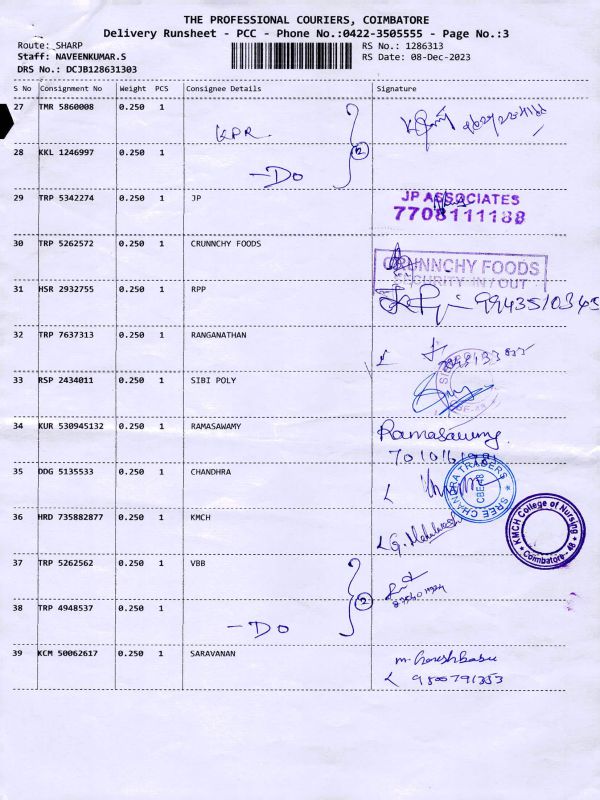 THE PROFESSIONAL COURIERS, COIMBATORE
Delivery Runsheet - PCC - Phone No.:0422-3505555 - Page No.:3
Route: SHARP
Staff: NAVEENKUMAR.S
DRS No.: DCJB128631303
RS No.: 1286313
RS Date: 08-Dec-2023
S No Consignment No Weight PCS Consignee Details Signature
27 TMR 5860008 0.250 1 KPR
28 KKL 1246997 0.250 1 -DO 2
29 TRP 5342274 0.250 1 JP
JP ASSOCIATES
7708111188
30 TRP 5262572 0.250 1 CRUNNCHY FOODS
CRUNNCHY FOODS
SECURITY IN / OUT
31 HSR 2932755 0.250 1 RPP
32 TRP 7637313 0.250 1 RANGANATHAN
33 RSP 2434011 0.250 1 SIBI POLY
34 KUR 530945132 0.250 1 RAMASAWAMY
Ramasawmy.
35 DDG 5135533 0.250 1 CHANDHRA
SREE CHANDRA TRADERS
36 HRD 735882877 0.250 1 KMCH
KMCH College of Nursing
Coimbatore - 48
37 TRP 5262562 0.250 1 VBB
38 TRP 4948537 0.250 1 -DO 2
39 KCM 50062617 0.250 1 SARAVANAN
9500791353